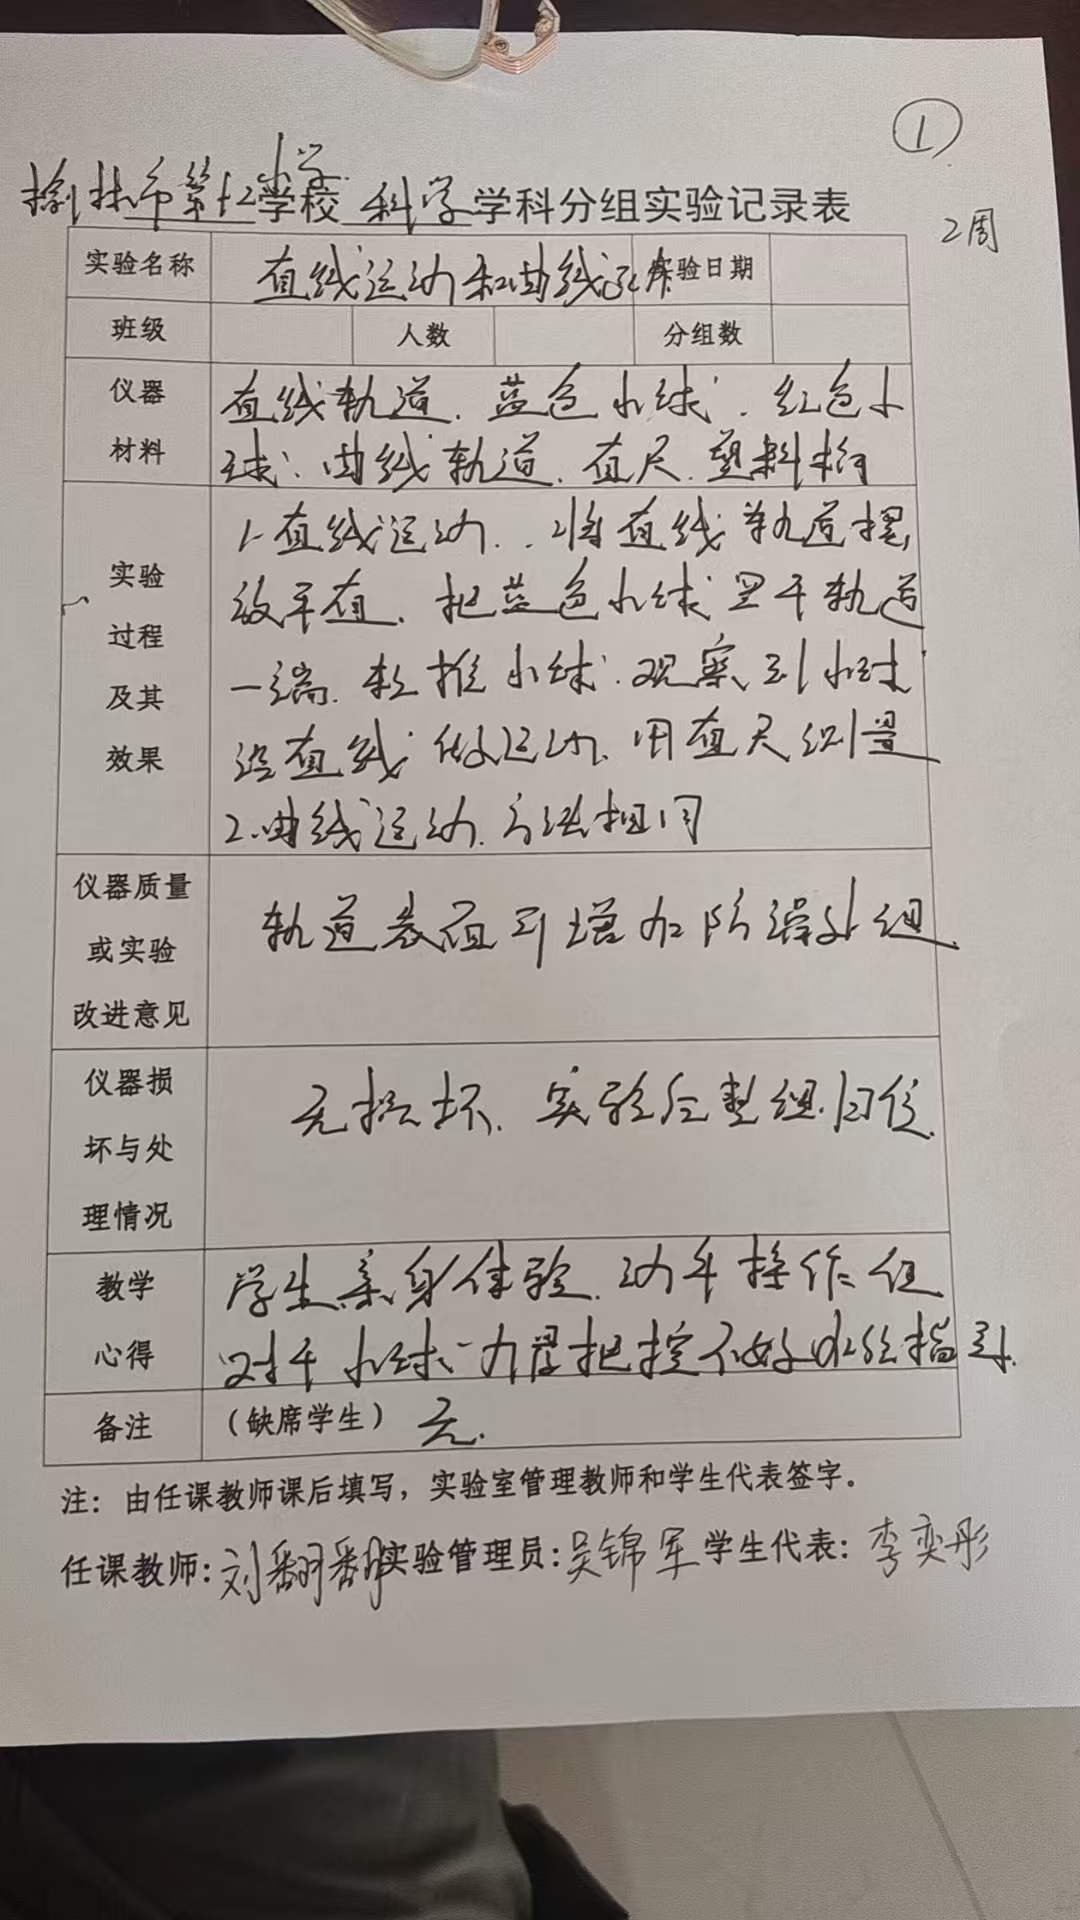 ①
榆林市第十二小学学校 科学 学科分组实验记录表
2周
实验名称 直线运动和曲线运动 实验日期
班级 人数 分组数
仪器材料 直线轨道、蓝色小球、红色小
球、曲线轨道、直尺、塑料
实验过程及其效果 1、直线运动、将直线轨道摆
放平直、把蓝色小球置于轨道
一端、轻推小球、观察到小球
沿直线做运动、用直尺测量
2、曲线运动、方法相同
仪器质量或实验改进意见 轨道表面可增加防滑
仪器损坏与处理情况 无损坏、实验后整组归位
教学心得 学生亲身体验、动手操作但
对于小球力度把控不好
备注 (缺席学生) 无
注：由任课教师课后填写，实验室管理教师和学生代表签字。
任课教师：刘翻翻 实验管理员：吴锦军 学生代表：李奕彤